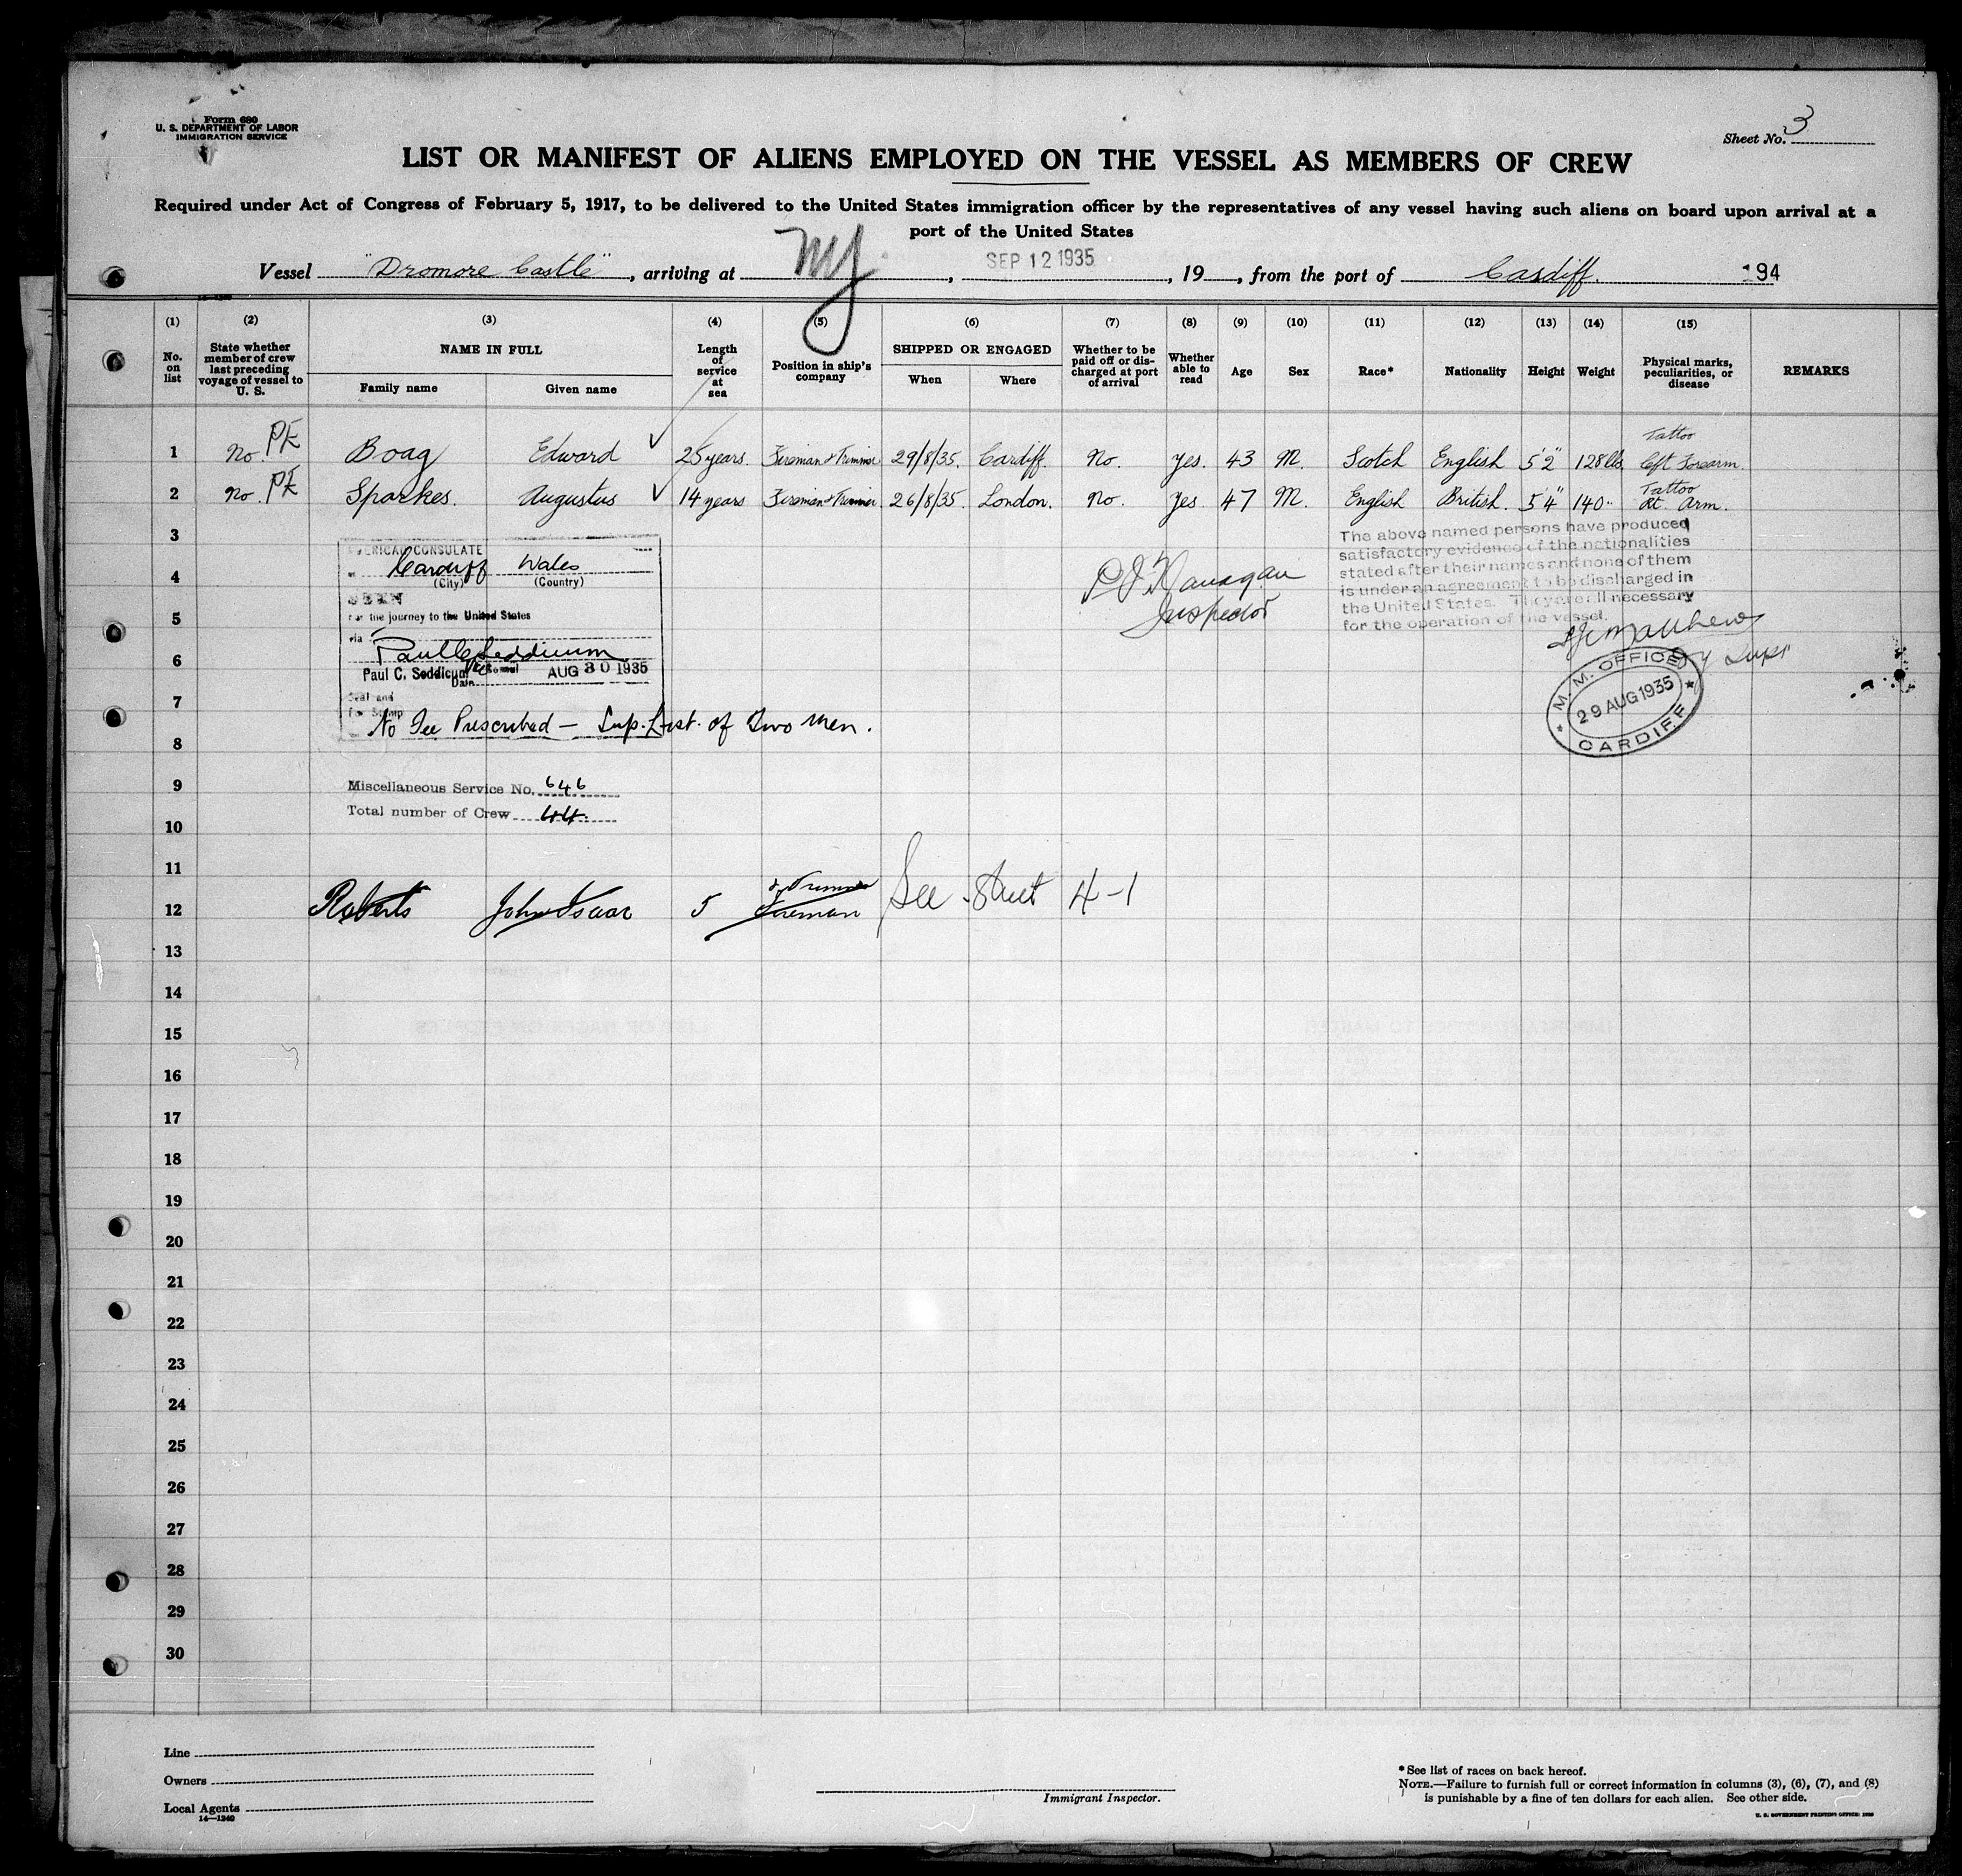 Form 680
U. S. DEPARTMENT OF LABOR
IMMIGRATION SERVICE
Sheet No. 3
LIST OR MANIFEST OF ALIENS EMPLOYED ON THE VESSEL AS MEMBERS OF CREW
Required under Act of Congress of February 5, 1917, to be delivered to the United States immigration officer by the representatives of any vessel having such aliens on board upon arrival at a
port of the United States
Vessel "Dromore Castle", arriving at NY, SEP 12 1935, 19, from the port of Cardiff. 194
(1) (2) (3) (4) (5) (6) (7) (8) (9) (10) (11) (12) (13) (14) (15)
No. on list
State whether member of crew last preceding voyage of vessel to U. S.
NAME IN FULL
Family name Given name
Length of service at sea
Position in ship's company
SHIPPED OR ENGAGED
When Where
Whether to be paid off or discharged at port of arrival
Whether able to read
Age
Sex
Race*
Nationality
Height
Weight
Physical marks, peculiarities, or disease
REMARKS
1 No. PE Boag Edward 25 years. Fireman & Trimmer 29/8/35. Cardiff. No. yes. 43 M. Scotch English 5'2" 128 lbs Tattoo left Forearm.
2 No. PE Sparkes. Augustus 14 years Fireman & Trimmer. 26/8/35. London. No. Yes. 47 M. English British. 5'4" 140" Tattoo Rt. Arm.
3
4
5
6
7
8
9
10
11
12 Roberts John Isaac 5 & Trimmer Fireman See Sheet 4-1
13
14
15
16
17
18
19
20
21
22
23
24
25
26
27
28
29
30
AMERICAN CONSULATE
Cardiff Wales
(City) (Country)
SEEN
For the journey to the United States
via
Paul C Seddicum
Paul C. Seddicum Vice Consul
Date AUG 30 1935
Seal and
Fee Stamp
No Fee Prescribed — Sup. List of Two Men.
Miscellaneous Service No. 646
Total number of Crew 44
Inspector
The above named persons have produced
satisfactory evidence of the nationalities
stated after their names and none of them
is under an agreement to be discharged in
the United States. They are all necessary
for the operation of the vessel.
Matthews
Dy Supt
M. M. OFFICE
29 AUG 1935
CARDIFF
Line
Owners
Local Agents
14—1240
Immigrant Inspector.
*See list of races on back hereof.
NOTE.—Failure to furnish full or correct information in columns (3), (6), (7), and (8)
is punishable by a fine of ten dollars for each alien. See other side.
U. S. GOVERNMENT PRINTING OFFICE